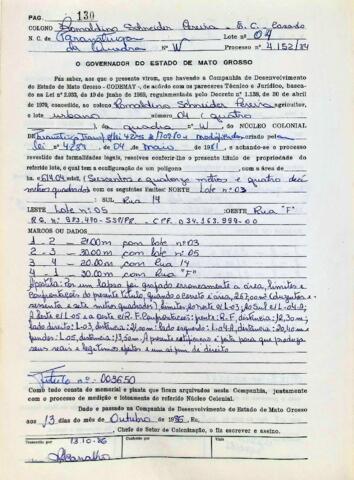 PAG. 130
COLONO Romoaldino Schneider Pereira - B.C. - Casado
N. C. de Paranatinga Lote nº 04
da Quadra nº W Processo nº 4.152/84
O GOVERNADOR DO ESTADO DE MATO GROSSO
Faz saber, aos que o presente virem, que havendo a Companhia de Desenvolvimento
do Estado de Mato Grosso - CODEMAT -, de acordo com os pareceres Técnico e Jurídico, basea-
da na Lei nº 2.033, de 19 de junho de 1963, regulamentada pelo Decreto nº 1.138, de 30 de abril
de 1970, concedido, ao colono Schneider Pereira agricultor, o
lote urbano nº 04 (quatro)
da quadra nº W do NÚCLEO COLONIAL
DE Paranatinga modificada estado pela
lei nº 4.287, de 04 de maio de 1981, e achando-se o processo
revestido das formalidades legais, resolve conferir-lhe o presente título de propriedade do
referido lote, o qual tem a configuração de um polígono com área
de 614.04 (Seiscentos e quatorze metros e quatro decí
metros quadrados) com os seguintes limites: NORTE Lote nº 03
SUL Rua 14
LESTE Lote nº 05 OESTE Rua "F"
R.G. nº 973.470 - SSP/PR - CPF. 034.163.999-00
MARCOS OU DADOS
1 - 2 - 21.00m com lote nº 03
2 - 3 - 30.00m com lote nº 05
3 - 4 - 20.00m com Rua 14
4 - 1 - 30.00m com Rua "F"
Apostila: Por um lapso foi grafado erroneamente a área, limites e
confrontações do presente título, quando o correto é área, 267,00m² (duzentos e
sessenta e sete metros quadrados) limites, ao norte c/ L-03, ao Sul c/ L-04-A,
à leste c/ L-05 e a oeste c/ R.F. Confrontações: frente: R.F, distância: 12,30m;
lado direito: L-03, distância: 21,00m; lado esquerdo: L-04-A, distância: 20,40m e
fundos: L-05, distância: 13,50m. A presente é feita para que produza
seus reais e legítimos efeitos e um fim de direito.
Título nº: 003650
Como tudo consta do memorial e planta que ficam arquivados nesta Companhia, juntamente
com o processo de medição e loteamento do referido Núcleo Colonial.
Dado e passado na Companhia de Desenvolvimento do Estado de Mato Grosso
aos 13 dias do mês de Outubro de 1986. Eu,
, Chefe do Setor de Colonização, o fiz escrever e assino.
Transcrito por
Conferido por
Visto
13.10.86